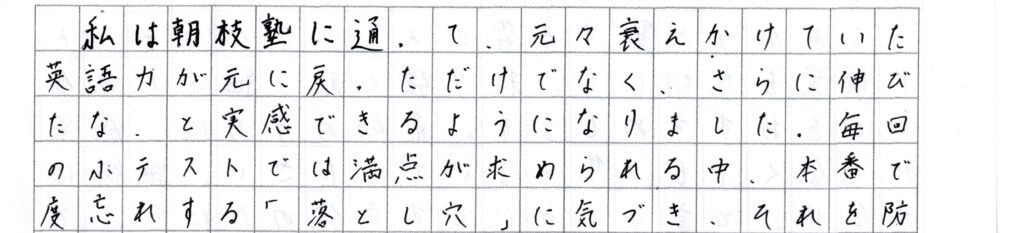 私は朝枝塾に通って、元々衰えかけていた
英語力が元に戻っただけでなく、さらに伸び
たな、と実感できるようになりました。毎回
の小テストでは満点が求められる中、本番で
度忘れする「落とし穴」に気づき、それを防